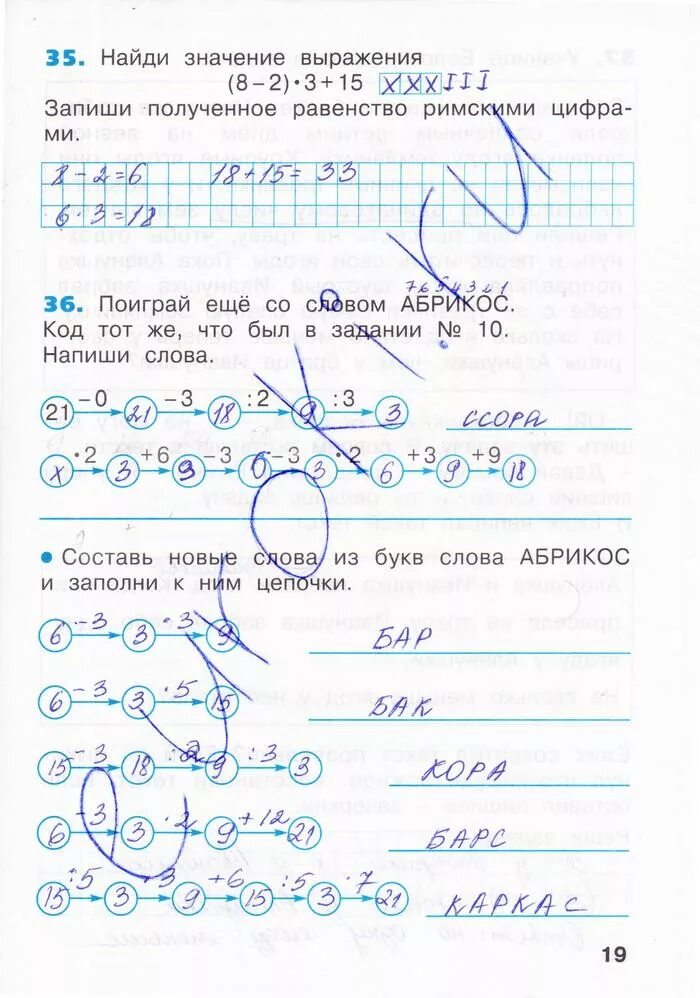 35. Найди значение выражения
(8 – 2) · 3 + 15 XXXIII
Запиши полученное равенство римскими цифра-
ми.
8 - 2 = 6 18 + 15 = 33
6 · 3 = 18
7 6 5 4 3 2 1
36. Поиграй ещё со словом АБРИКОС.
Код тот же, что был в задании № 10.
Напиши слова.
21 –0 21 –3 18 :2 9 :3 3 ССОРА
·2 3 +6 9 –3 6 –3 3 ·2 6 +3 9 +9 18
• Составь новые слова из букв слова АБРИКОС
и заполни к ним цепочки.
6 -3 3 ·3 9 БАР
6 -3 3 ·5 15 БАК
15 +3 18 :2 9 :3 3 КОРА
6 -3 3 9 +12 21 БАРС
15 :5 3 ·3 9 +6 15 :5 3 ·7 21 КАРКАС
19